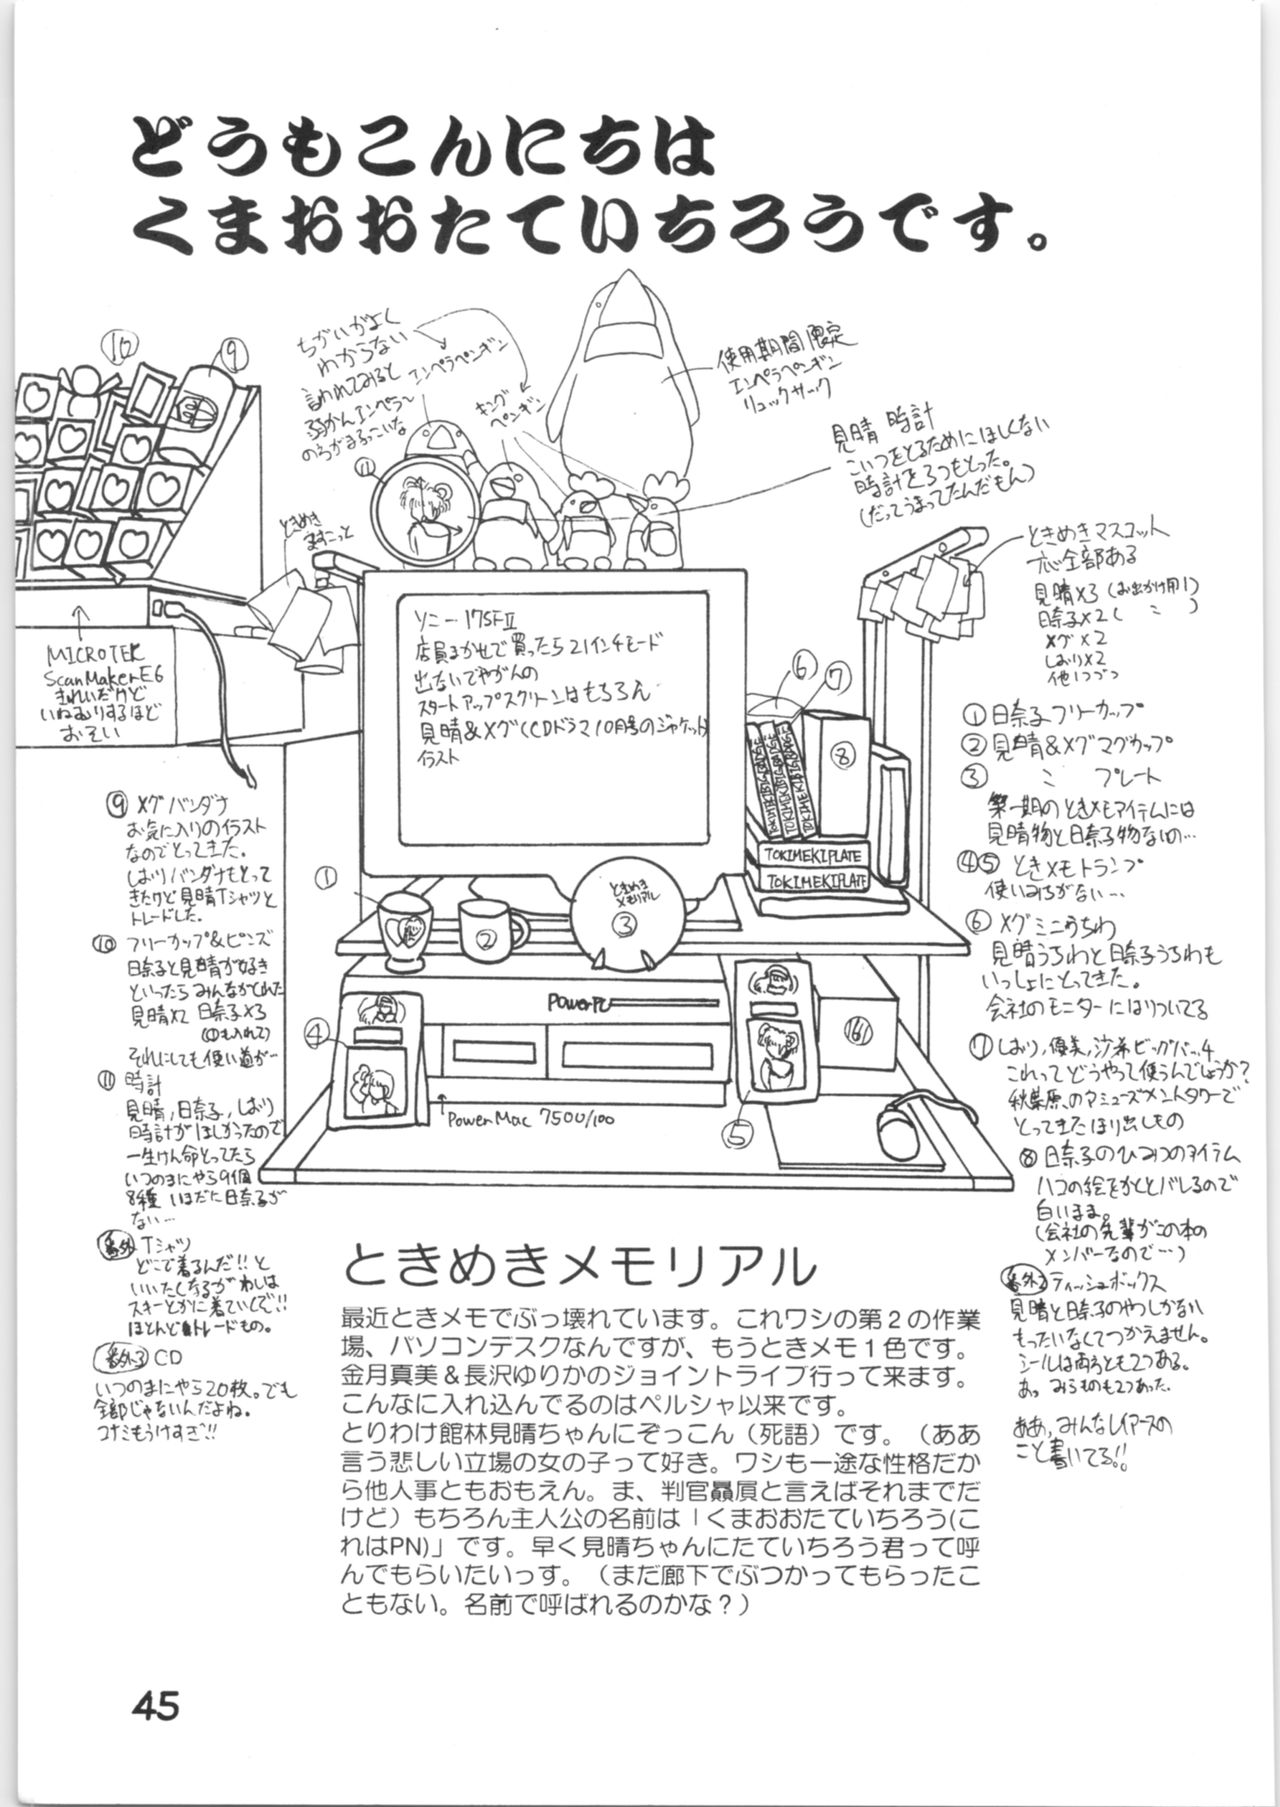 どうもこんにちは
くまおおたていちろうです。
⑩
⑨
ちがいがよく
わからない
言われてみると
弱かんエンペラー
のろがまるっこいな
エンペラペンギン
キング
ペンギン
使用期間限定
エンペラペンギン
リュックサック
見晴 時計
こいつをとるためにほしくない
時計を3つもとった。
(だってうまってたんだもん)
⑪
ときめき
ますこっと
ときめきマスコット
全部ある
見晴×3(お出かけ用1)
日奈子×2(〃)
メグ×2
しおり×2
他1つづつ
MICROTEK
ScanMakerE6
きれいだけど
いねむりするほど
おそい
ソニー17SFⅡ
店員まかせで買ったら21インチモード
出ないでやがんの
スタートアップスクリーンはもちろん
見晴&メグ(CDドラマ10月号のジャケット)
イラスト
⑥
⑦
⑧
TOKIMEKIPLATE
TOKIMEKIPLATE
①日奈子フリーカップ
②見晴&メグマグカップ
③ 〃 プレート
第一期のときメモアイテムには
見晴物と日奈子物ないの…
④⑤ ときメモトランプ
使いみちがない…
⑥ メグミニうちわ
見晴うちわと日奈子うちわも
いっしょにとってきた。
会社のモニターにはりついてる
⑦しおり,優美,沙希ビッグバッチ
これってどうやって使うんでしょうか?
秋葉原のアミューズメントタワーで
とってきたほり出しもの
⑧日奈子のひみつのアイテム
ハコの絵をかくとバレるので
白いまま。
(会社の先輩がこの本の
メンバーなので…)
番外2 ティッシュボックス
見晴と日奈子のやつしかない
もったいなくてつかえません。
シールは両方とも2つある。
あっ みらものも2つあった。
ああ,みんなレイアースの
こと書いてる!!
⑨ メグバンダナ
お気に入りのイラスト
なのでとってきた。
しおりバンダナもとって
きたけど見晴Tシャツと
トレードした。
⑩ フリーカップ&ピンズ
日奈子と見晴が好き
といったらみんながくれた
見晴×2 日奈子×3
(①も入れて)
それにしても使い道が…
⑪ 時計
見晴,日奈子,しおり
時計がほしかったので
一生けん命とってたら
いつのまにやら9個
8種 いまだに日奈子が
ない…
番外 Tシャツ
どこで着るんだ!!と
いいたくなるがわしは
スキーとかに着ていくで!!
ほとんどトレードもの。
番外3 CD
いつのまにやら20枚。でも
全部じゃないんだよね。
コナミもうけすぎ!!
①
②
ときめき
メモリアル
③
PowerPC
④
⑤
PowerMac 7500/100
ときめきメモリアル
最近ときメモでぶっ壊れています。これワシの第2の作業
場、パソコンデスクなんですが、もうときメモ1色です。
金月真美&長沢ゆりかのジョイントライブ行って来ます。
こんなに入れ込んでるのはペルシャ以来です。
とりわけ館林見晴ちゃんにぞっこん（死語）です。（ああ
言う悲しい立場の女の子って好き。ワシも一途な性格だか
ら他人事ともおもえん。ま、判官贔屓と言えばそれまでだ
けど）もちろん主人公の名前は「くまおおたていちろう(こ
れはPN)」です。早く見晴ちゃんにたていちろう君って呼
んでもらいたいっす。（まだ廊下でぶつかってもらったこ
ともない。名前で呼ばれるのかな？）
45